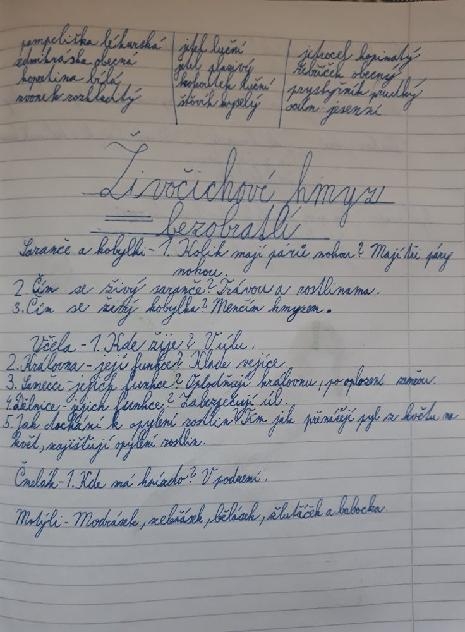 pampeliška lékařská
sedmikráska obecná
kopretina bílá
zvonek rozkladitý
jetel luční
jetel plazivý
kohoutek luční
šťovík kyselý
jitrocel kopinatý
řebříček obecný
pryskyřník prudký
ocún jesenní
Živočichové hmyz
bezobratlí
Saranče a kobylka - 1. Kolik mají párů nohou? Mají tři páry
nohou.
2. Čím se živý saranče? Trávou a rostlinama.
3. Čím se živý kobylka? Menčím hmyzem.
Včela - 1. Kde žije? V úlu.
2. Královna - její funkce? Klade vejíce
3. Samecci jejich funkce? Oplodnují královnu, po oplození umírou.
4. Dělnice - jejich funkce? Zabezpečují úl.
5. Jak dochání k opylení rostlin? Tím jak přenášejí pyl z květu na
květ, zajišťují opylení rostlin.
Čmelák - 1. Kde má hnízdo? V podzemí.
Motýli - Modrásek, bělásek, žlutásek a babočka